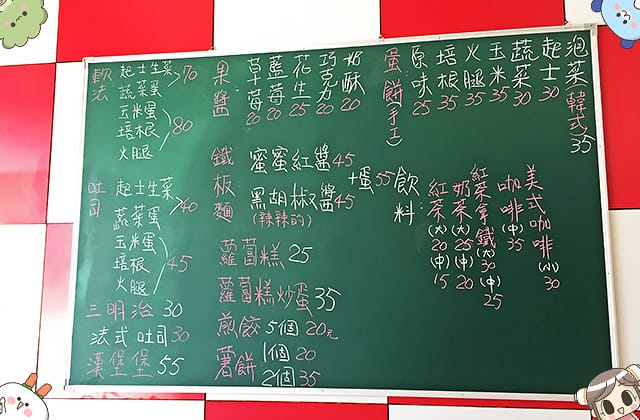 軟法
起士生菜
蔬菜蛋
70
玉米蛋
培根
火腿
80
吐司
起士生菜
蔬菜蛋
40
玉米蛋
培根
火腿
45
三明治 30
法式吐司 30
漢堡堡 55
果醬
草莓 20
藍莓 20
花生 25
巧克力 20
奶酥 20
鐵板麵
蜜蜜紅醬 45
黑胡椒醬 45
(辣辣的)
+蛋 55
蘿蔔糕 25
蘿蔔糕炒蛋 35
煎餃 5個 20元
薯餅 1個 20
2個 35
蛋餅(手工)
原味 25
培根 35
火腿 35
玉米 35
蔬菜 30
起士 30
泡菜韓式 35
飲料:
紅茶(大) 20 (中) 15
奶茶(大) 25 (中) 20
紅茶拿鐵(大) 30 (中) 25
咖啡(中) 35
美式咖啡(小) 30